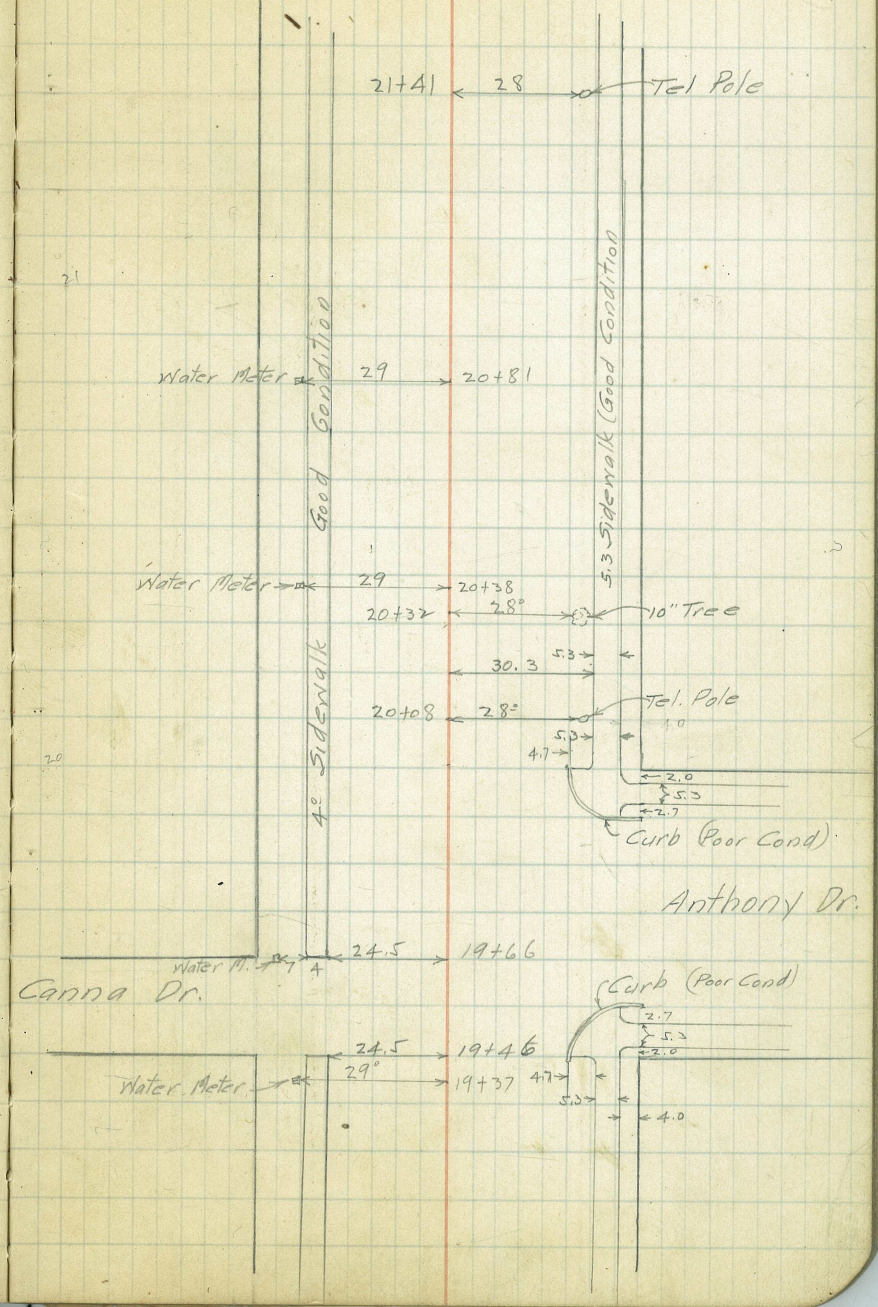 21+41 28 Tel Pole
21
Water Meter 29 20+81
Good Condition
5.3 Sidewalk (Good Condition
Water Meter 29 20+38
20+32 28° 10" Tree
5.3
30.3
4° Sidewalk
20+08 28° Tel. Pole
4.0
5.3
4.7
20
2.0
5.3
2.7
Curb (Poor Cond)
Anthony Dr.
24.5 19+66
Water M. 7 4
Canna Dr.
Curb (Poor Cond)
2.7
5.3
2.0
24.5 19+46
Water Meter 29° 19+37 4.7
5.3
4.0